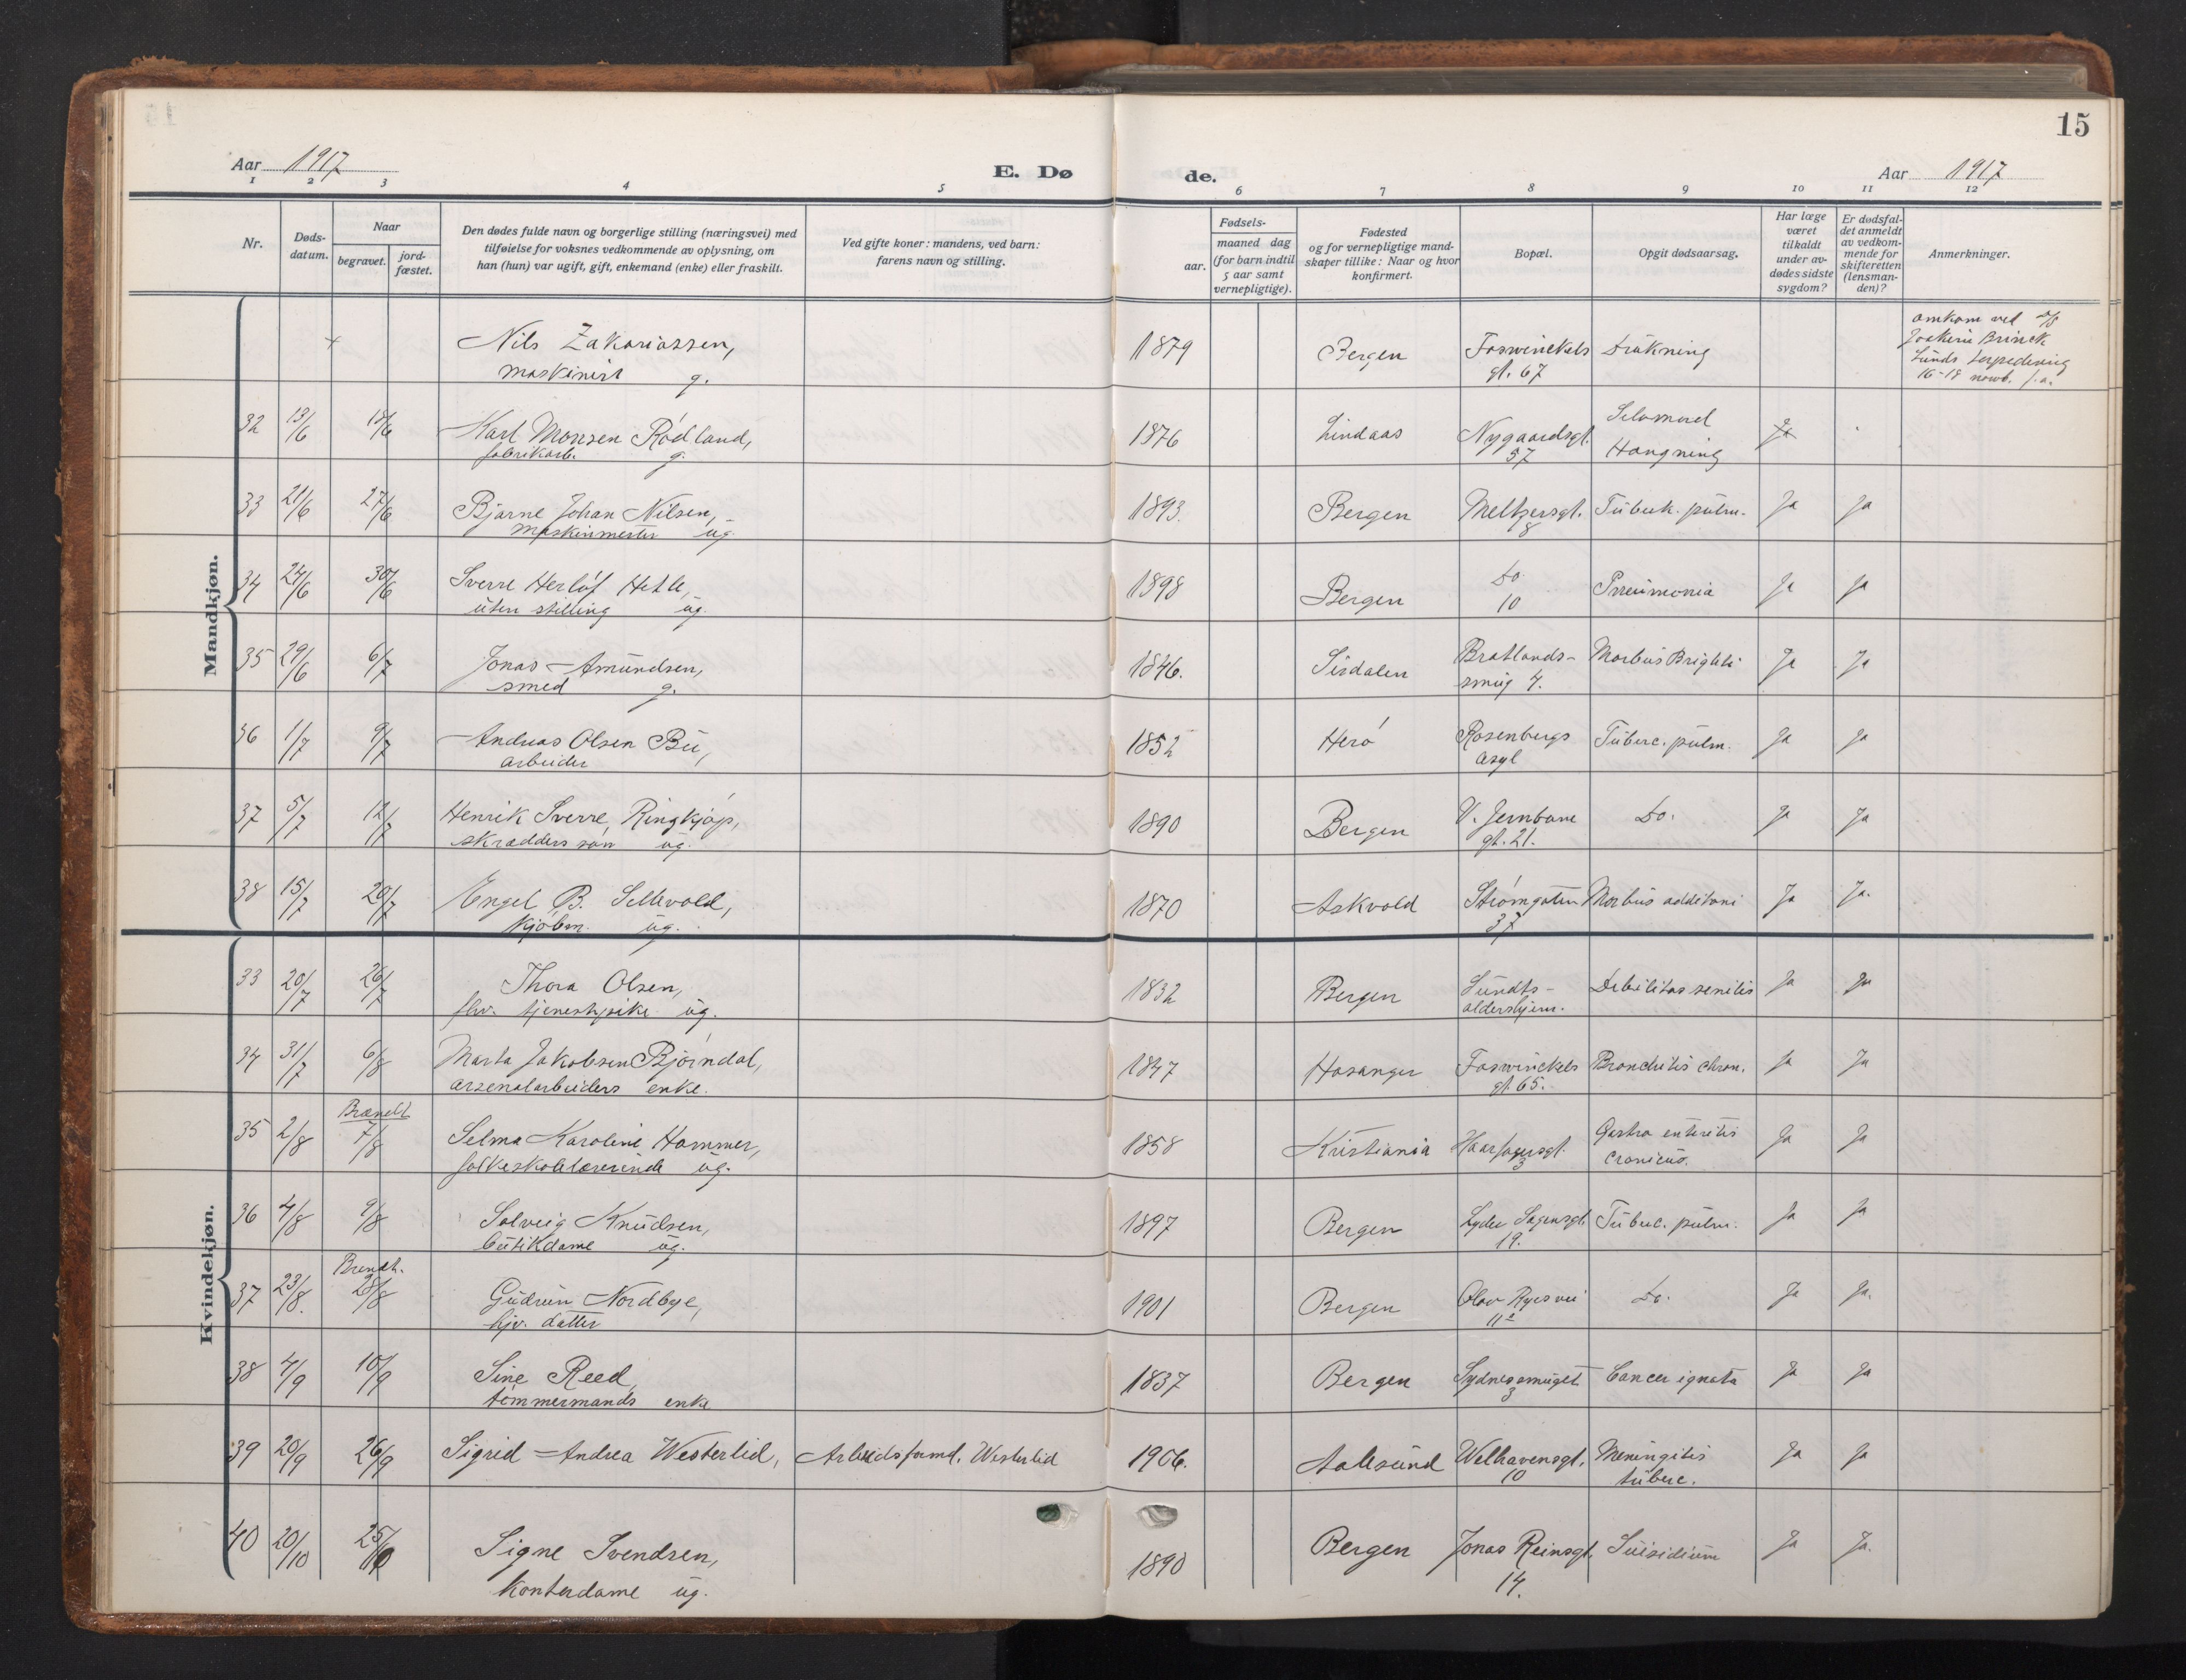 15
Aar 1917
E. Dø
de.
Aar 1917
1 2 3 4 5 6 7 8 9 10 11 12
Nr.
Døds-
datum.
Naar
begravet.
jord-
fæstet.
Den dødes fulde navn og borgerlige stilling (næringsvei) med
tilføielse for voksnes vedkommende av oplysning, om
han (hun) var ugift, gift, enkemand (enke) eller fraskilt.
Ved gifte koner: mandens, ved barn:
farens navn og stilling.
aar.
Fødsels-
maaned dag
(for barn indtil
5 aar samt
vernepligtige).
Fødested
og for vernepligtige mand-
skaper tillike: Naar og hvor
konfirmert.
Bopæl.
Opgit dødsaarsag.
Har læge
været
tilkaldt
under av-
dødes sidste
sygdom?
Er dødsfal-
det anmeldt
av vedkom-
mende for
skifteretten
(lensman-
den)?
Anmerkninger.
Mandkjøn.
Nils Zakariassen, 1879 Bergen Foswinckels Drukning
maskinist g. gt. 67
omkom ved D/S
Joakim Brinck
Lunds torpedering
16-18 novb. f.a.
32 13/6 18/6 Karl Monsen Rødland, 1876 Lindaas Nygaardsgt. Selvmord
fabrikarb. g. 57 Hængning
33 21/6 27/6 Bjarne Johan Nilsen, 1893. Bergen Meltzersgt. Tuberk. pulm. Ja Ja
maskinmester ug. 8
34 24/6 30/6 Sverre Herlöf Hetle, 1898 Bergen Do Pneumonia Ja Ja
uten stilling ug. 10
35 29/6 6/7 Jonas Amundsen, 1846. Sirdalen Bratlands- Morbus Brighti Ja Ja
smed g. smug 4.
36 1/7 9/7 Andreas Olsen Bu, 1852 Herö Rosenbergs Tuberc. pulm. Ja Ja
arbeider asyl
37 5/7 12/7 Henrik Sverre Ringkjöp, 1890 Bergen V. Jernbane Do. Ja Ja
skrædders sön ug. gt. 21.
38 15/7 20/7 Engel B. Sellevold, 1870 Askvold Strömgaten Morbus additoni Ja Ja.
kjöbm. ug. 37
Kvindekjøn.
33 20/7 26/7 Thora Olsen, 1832 Bergen Sundts- Debilitas senilis Ja Ja
fhv. tjenestpike ug. aldershjem.
34 31/7 6/8 Marta Jakobsen Björndal, 1847 Hosanger Foswinckels Bronchitis chron. Ja Ja
arsenalarbeiders enke. gt. 65.
Brændt
35 2/8 7/8 Selma Karoline Hammer, 1858 Kristiania Haarfagersgt. Gastro enteritis Ja Ja
folkeskolelærerinde ug. 3 cronicus.
36 4/8 9/8 Solveig Knudsen, 1897 Bergen Lyder Sagensgt. Tuberc. pulm. Ja Ja
butikdame ug. 19.
Brendt.
37 23/8. 28/8 Gudrun Nordbye, 1901 Bergen Olav Ryesvei Do. Ja Ja.
hjv. datter
38 4/9 10/9 Sine Reed, 1837 Bergen Sydnessmuget Cancer ignota Ja Ja
tömmermands enke 3
39 20/9 26/9 Sigrid Andrea Westerlid, Arbeidsformd. Westerlid 1906. Aalesund Welhavensgt. Meningitis Ja Ja
10 tuberc.
40 20/10 25/10 Signe Svendsen, 1890 Bergen Jonas Reinsgt. Suisidium Ja Ja.
Kontordame ug. 14.